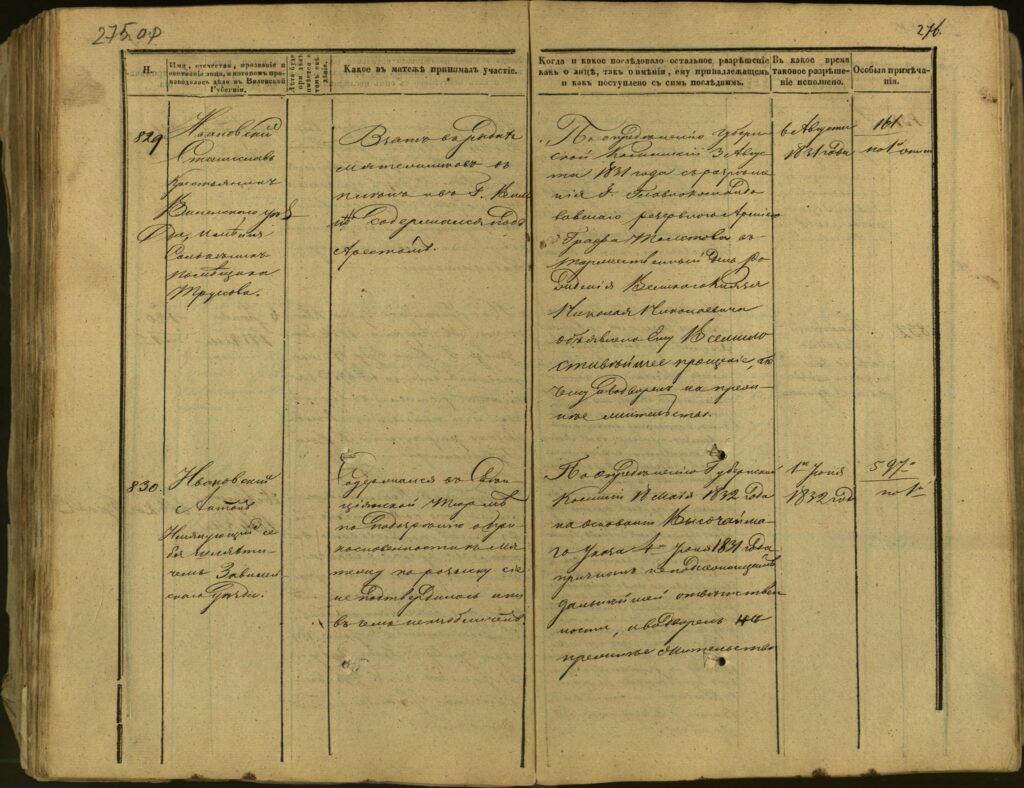 275 об
276.
Н.
Имя, отечество, прозваніе и
состояніе лица, о которомъ про-
изводилось дѣло въ Виленской
Губерніи.
Какое въ матежѣ принималъ участіе.
Когда и какое послѣдовало остальное разрѣшеніе
какъ о лицѣ, такъ о имѣніи, ему принадлежащемъ
и какъ поступлено съ симъ послѣднимъ.
Въ какое время
таковое разрѣше-
ніе исполнено.
Особыя примѣча-
нія.
829
Ивановскій
Станиславъ
Крестьянинъ
Виленскаго уѣз
да, имѣнія
помѣщика
Трусова.
Взятъ въ
мятежниковъ въ
плѣнъ
содержался подъ
Арестомъ.
По опредѣленію Губерн-
ской Коммисіи 3 Авгус-
та 1831 года съ разрѣше-
нія Г. Главнокомандо
вавшаго резервною Арміею
Графа Толстова въ
торжественный день ро
жденія Великаго Князя
Николая Николаевича
объявлено ему Всемило
стивѣйшее прощеніе,
и водворенъ на преж-
нее жительство.
6 Августа
1831 года
161
по 1й
830.
Ивановскій
Антонъ
Именующій се
бя шляхти-
чемъ Завилей-
скаго уѣзда.
Содержался въ Свен-
цянской Тюрьмѣ
по подозрѣнію о при
косновенности къ мя
тежу по розыску сіе
не подтвердилось и ни
въ чемъ не изобличенъ.
По опредѣленію Губернской
Коммисіи 18 Мая 1832 года
на основаніи Высочайша-
го Указа 4 Іюня 1831 года
признанъ неподлежащимъ
дальнѣйшей отвѣтствен
ности, и водворенъ на
прежнее жительство
1го Іюня
1832 год
597
по 1й